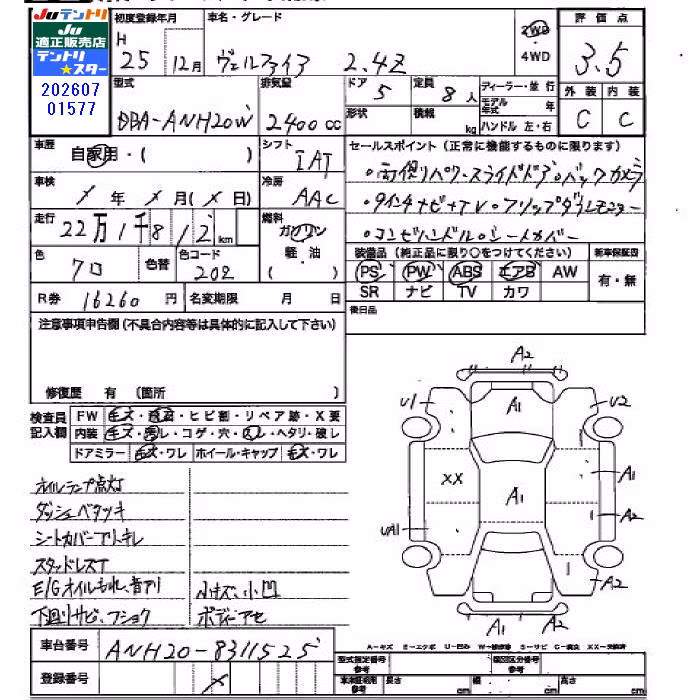 Juテントリ
Ju
適正販売店
テントリ
★スター
202607
01577
初度登録年月
H
25 12月
車名・グレード
ヴェルファイア 2.4Z
2WD
4WD
評価点
3.5
外装 内装
C C
型式
DBA-ANH20W
排気量
2400cc
ドア
5
形状
定員
8人
積載
kg
ディーラー・並行
モデル年式 年
ハンドル 左・右
車歴
自家用・( )
シフト
IAT
車検
年 月( 日)
冷房
AAC
走行
22万1千812km
燃料
ガソリン
軽・油
( )
色
クロ
色替
色コード
202
R券 16260円
名変期限 月 日
セールスポイント(正常に機能するものに限ります)
・両側リパワースライドドア・バックカメラ
・9インチナビ+TV・フリップダウンモニター
・コンビハンドル・シートカバー
装備品(純正品に限り○をつけてください)
新車保証書
PS PW ABS エアB AW
SR ナビ TV カワ
有・無
後日品
注意事項申告欄(不具合内容等は具体的に記入して下さい)
修復歴 有 (箇所 )
検査員
記入欄
FW キズ・ ・ヒビ割・リペア跡・X要
内装 キズ・ ・コゲ・穴・ ・ヘタリ・破レ
ドアミラー キズ・ワレ ホイール・キャップ キズ・ワレ
オイルランプ点灯
ダッシュベタツキ
シートカバーアリ・キレ
スタッドレス
E/Gオイルもれ、音アリ
小キズ、小凹
下回リサビ、フショク
ボディーアセ
車台番号
ANH20-8311525
登録番号
A2
U1
A1
U2
XX
A1
A1
UA1
A2
A2
A1 A2
A-キズ E-エクボ U-凹み W-補修跡 S-サビ C-腐食 XX-交換済
型式指定番号
参考
類別区分番号
参考
車体証明用
参考
長さ cm
幅 cm
高さ cm